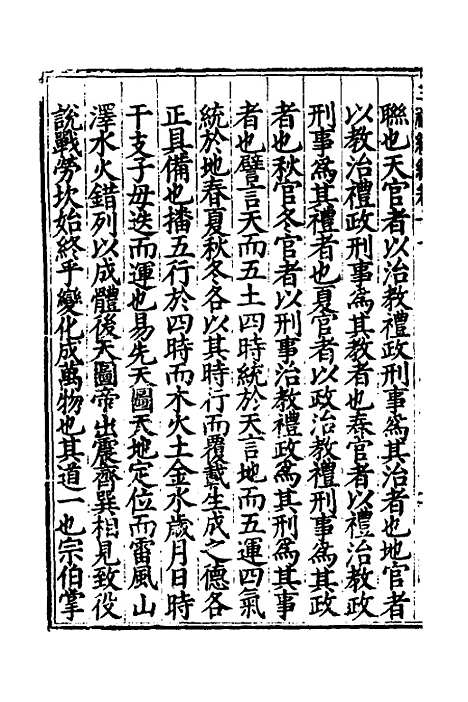 聯也天官者以治教禮政刑事爲其治者也地官者
以教治禮政刑事爲其教者也春官者以禮治教政
刑事爲其禮者也夏官者以政治教禮刑事爲其政
者也秋官冬官者以刑事治教禮政爲其刑爲其事
者也譬言天而五土四時統於天言地而五運四氣
統於地春夏秋冬各以其時行而覆載生成之德各
正具備也播五行於四時而木火土金水歲月日時
干支子母迭而運也易先天圖天地定位而雷風山
澤水火錯列以成體後天圖帝出震齊巽相見致役
說戰勞坎始終乎變化成萬物也其道一也宗伯掌